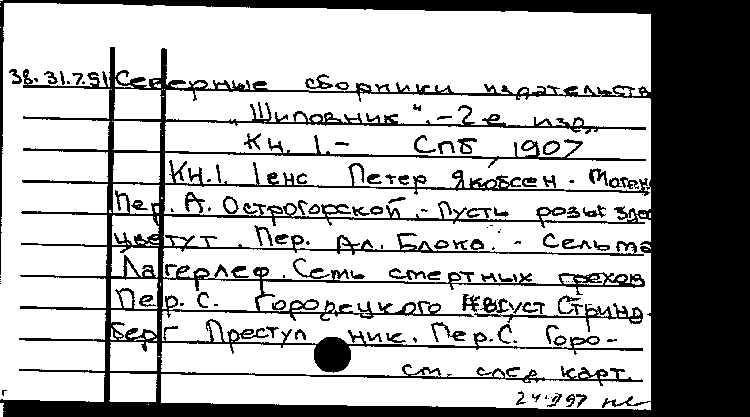 38. 31.7.91 Северные сборники издательств
„Шиповник“. - 2-е изд.
Кн. 1. - СПб, 1907
Кн. 1. Iенс Петер Якобсен. Моген
Пер. А. Острогорской. - Пусть розы здес
цветут. Пер. Ал. Блока. - Сельма
Лагерлеф. Семь смертных грехов
Пер. С. Городецкого Август Стринд-
берг Преступник. Пер. С. Горо-
см. след. карт.